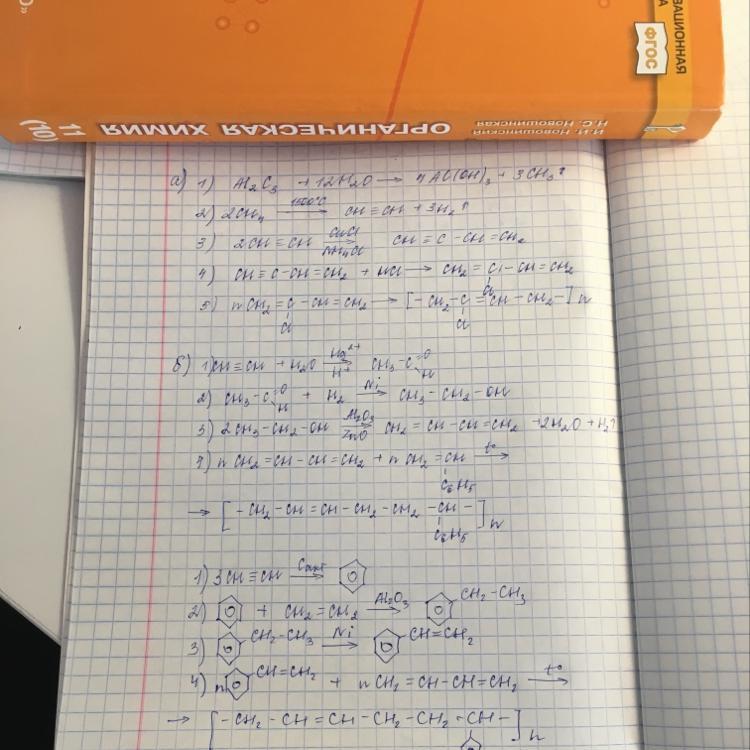 ЗАЦИОННАЯ
ФГОС
И.И. Новошинский
Н.С. Новошинская
ОРГАНИЧЕСКАЯ ХИМИЯ
11
(10)
а) 1) Al2C3 + 12H2O → 4Al(OH)3 + 3CH3↑
2) 2CH4 1500°C → CH≡CH + 3H2↑
3) 2CH≡CH CuCl → NH4Cl CH≡C-CH=CH2
4) CH≡C-CH=CH2 + HCl → CH2=C-CH=CH2
Cl
5) nCH2=C-CH=CH2 → [-CH2-C=CH-CH2-]n
Cl Cl
б) 1) CH≡CH + H2O Hg2+ → H+ CH3-C=O
H
2) CH3-C=O + H2 Ni → CH3-CH2-OH
H
3) 2CH3-CH2-OH Al2O3 → ZnO CH2=CH-CH=CH2 + 2H2O + H2↑
4) nCH2=CH-CH=CH2 + nCH2=CH t° →
C6H5
→ [-CH2-CH=CH-CH2-CH2-CH-]n
C6H5
1) 3CH≡CH Cакт →
2) + CH2=CH2 Al2O3 → CH2-CH3
3) CH2-CH3 Ni → CH=CH2
4) n CH=CH2 + nCH2=CH-CH=CH2 t° →
→ [-CH2-CH=CH-CH2-CH2-CH-]n